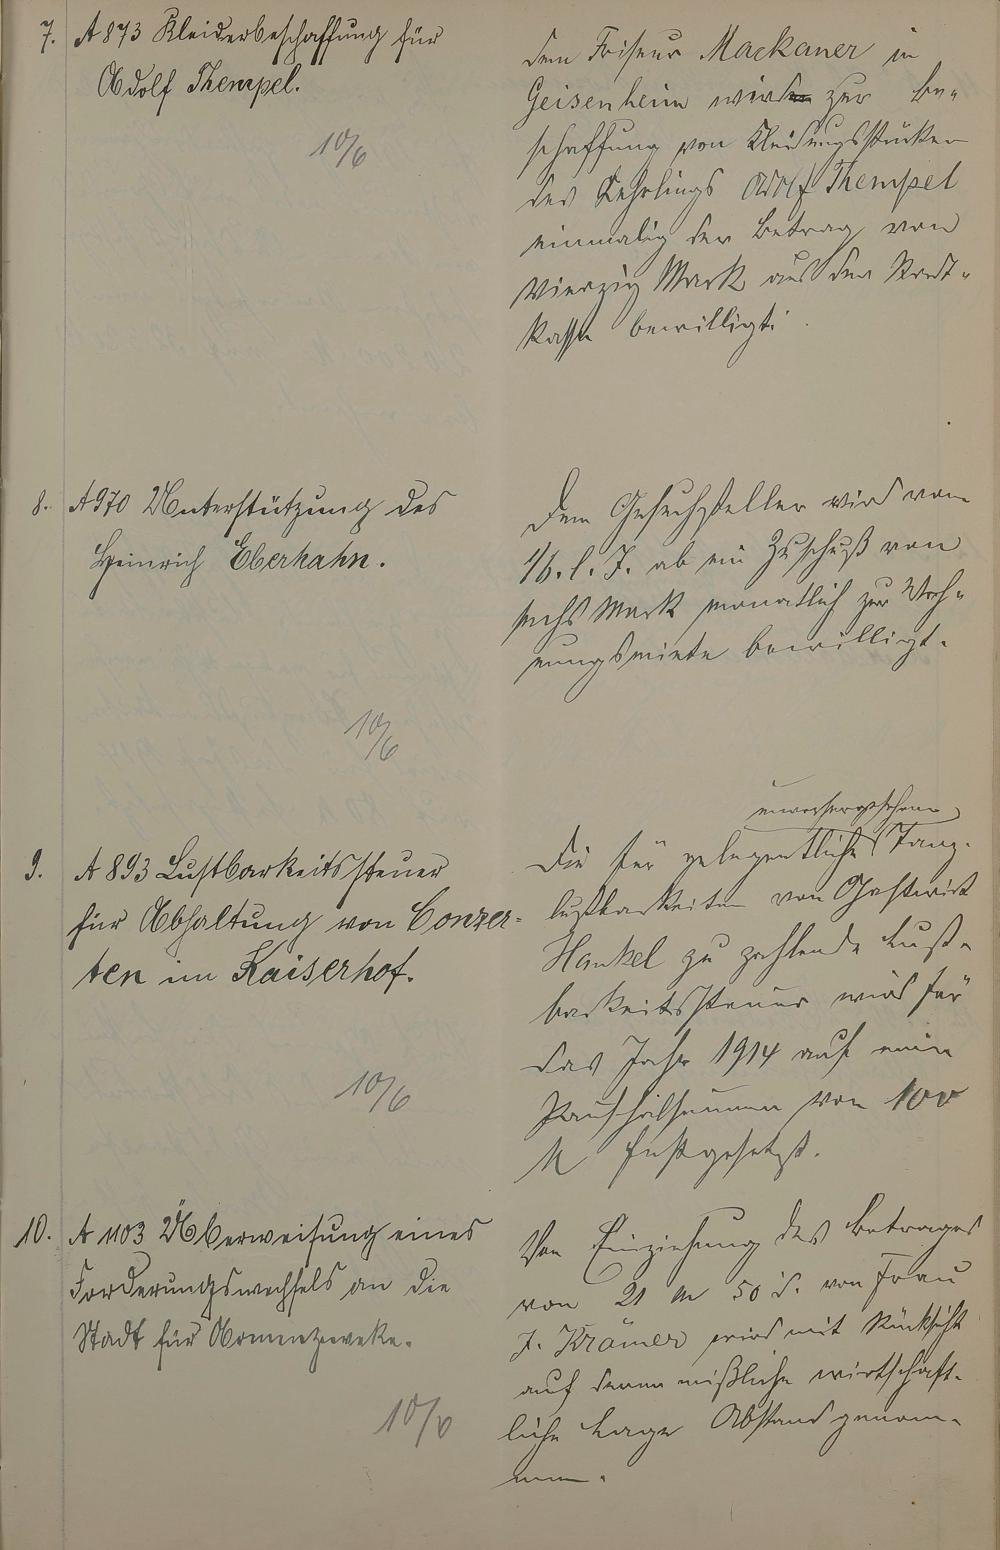 7. A 873 Kleiderbeschaffung für
Adolf Thempel.
10/6
dem Friseur Mackauer in
Geisenheim wird zur Be-
schaffung von Kleidungsstücken
des Lehrlings Adolf Thempel
einmalig der Betrag von
Vierzig Mark aus der Stadt-
kasse bewilligt.
8. A 970 Unterstützung des
Heinrich Eberhahn.
10/6
Dem Gesuchsteller wird vom
1/6. l. J. ab ein Zuschuß von
sechs Mark monatlich zur Woh-
nungsmiete bewilligt.
9. A 893 Lustbarkeitssteuer
für Abhaltung von Conzer-
ten im Kaiserhof.
10/6
unvorhergesehene
Die für gelegentliche Tanz-
lustbarkeiten von Gastwirt
Hankel zu zahlende Lust-
barkeitssteuer wird für
das Jahr 1914 auf eine
Pauschalsumme von 100
M festgesetzt.
10. A 1103 Überweisung eines
Forderungswechsels an die
Stadt für Armenzwecke.
10/6
Von Einziehung des Betrages
von 21 M 50 d. von Frau
J. Krämer wird mit Rücksicht
auf deren mißliche wirtschaft-
liche Lage Abstand genom-
men.